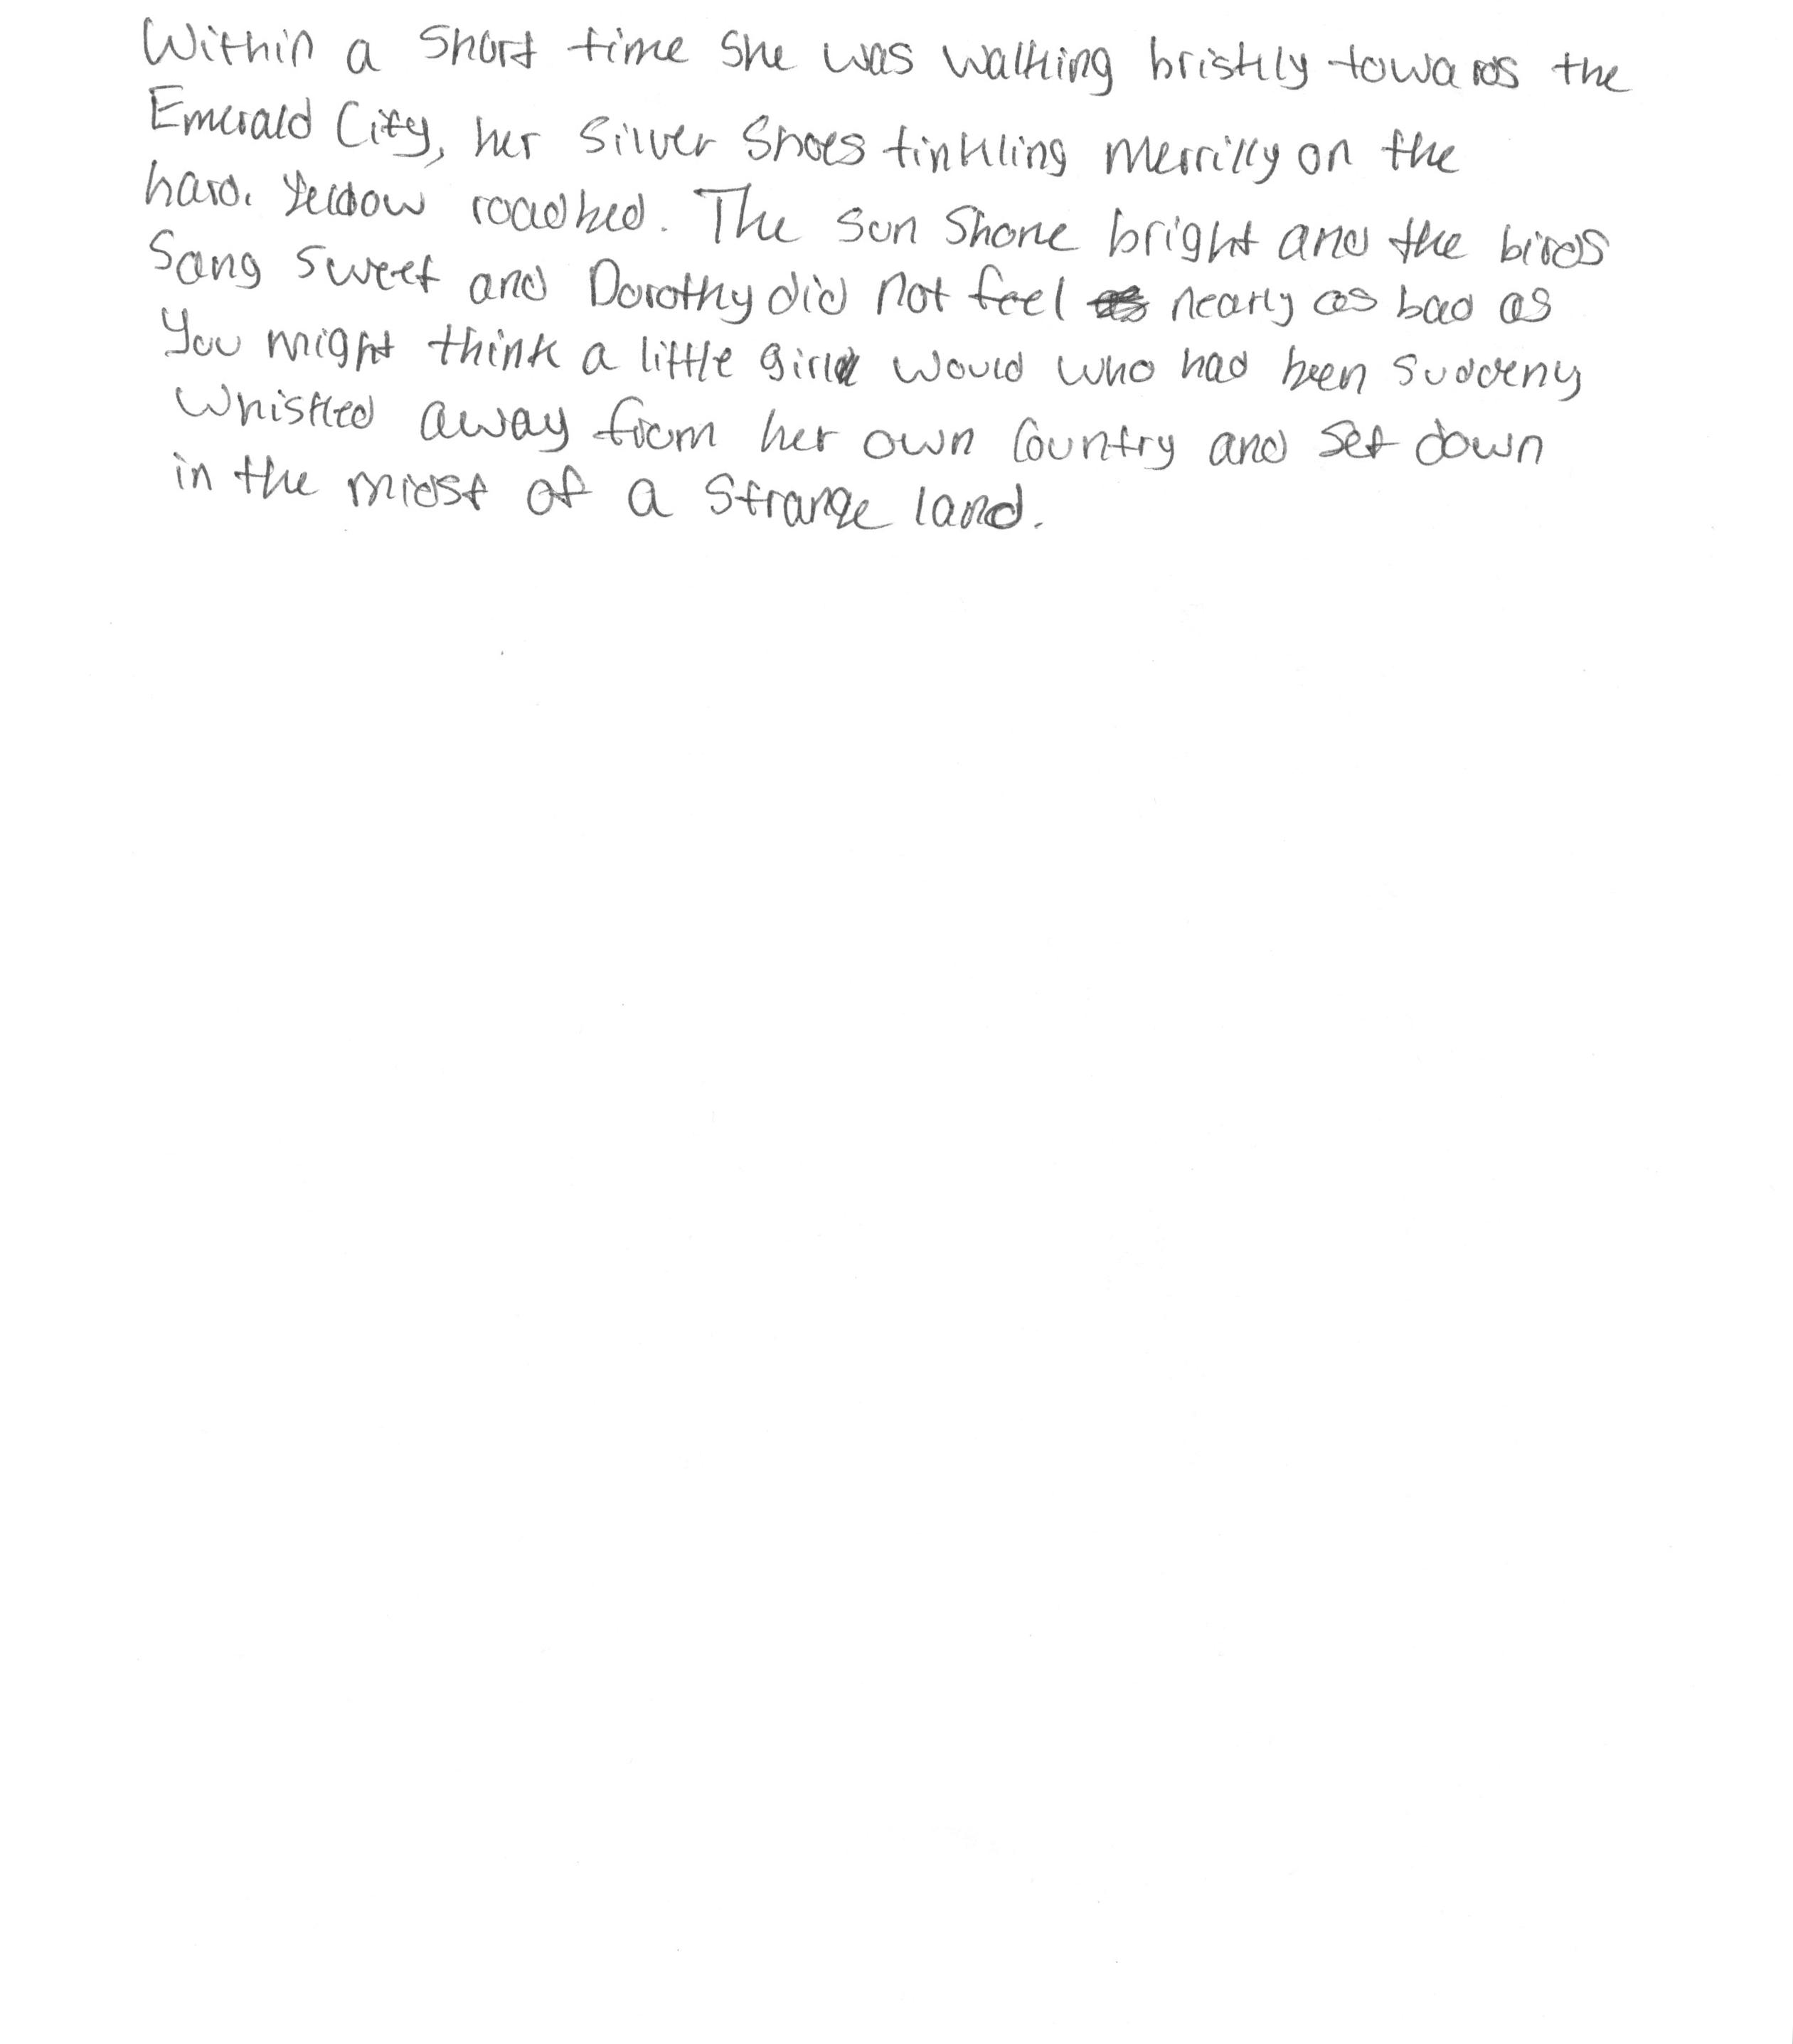 Within a short time she was walking briskly towards the
Emerald City, her Silver Shoes tinkling merrily on the
hard. Yellow roadbed. The sun shone bright and the birds
Sang sweet and Dorothy did not feel nearly as bad as
You might think a little girl would who had been suddeny
Whisked away from her own Country and set down
in the midst of a strange land.